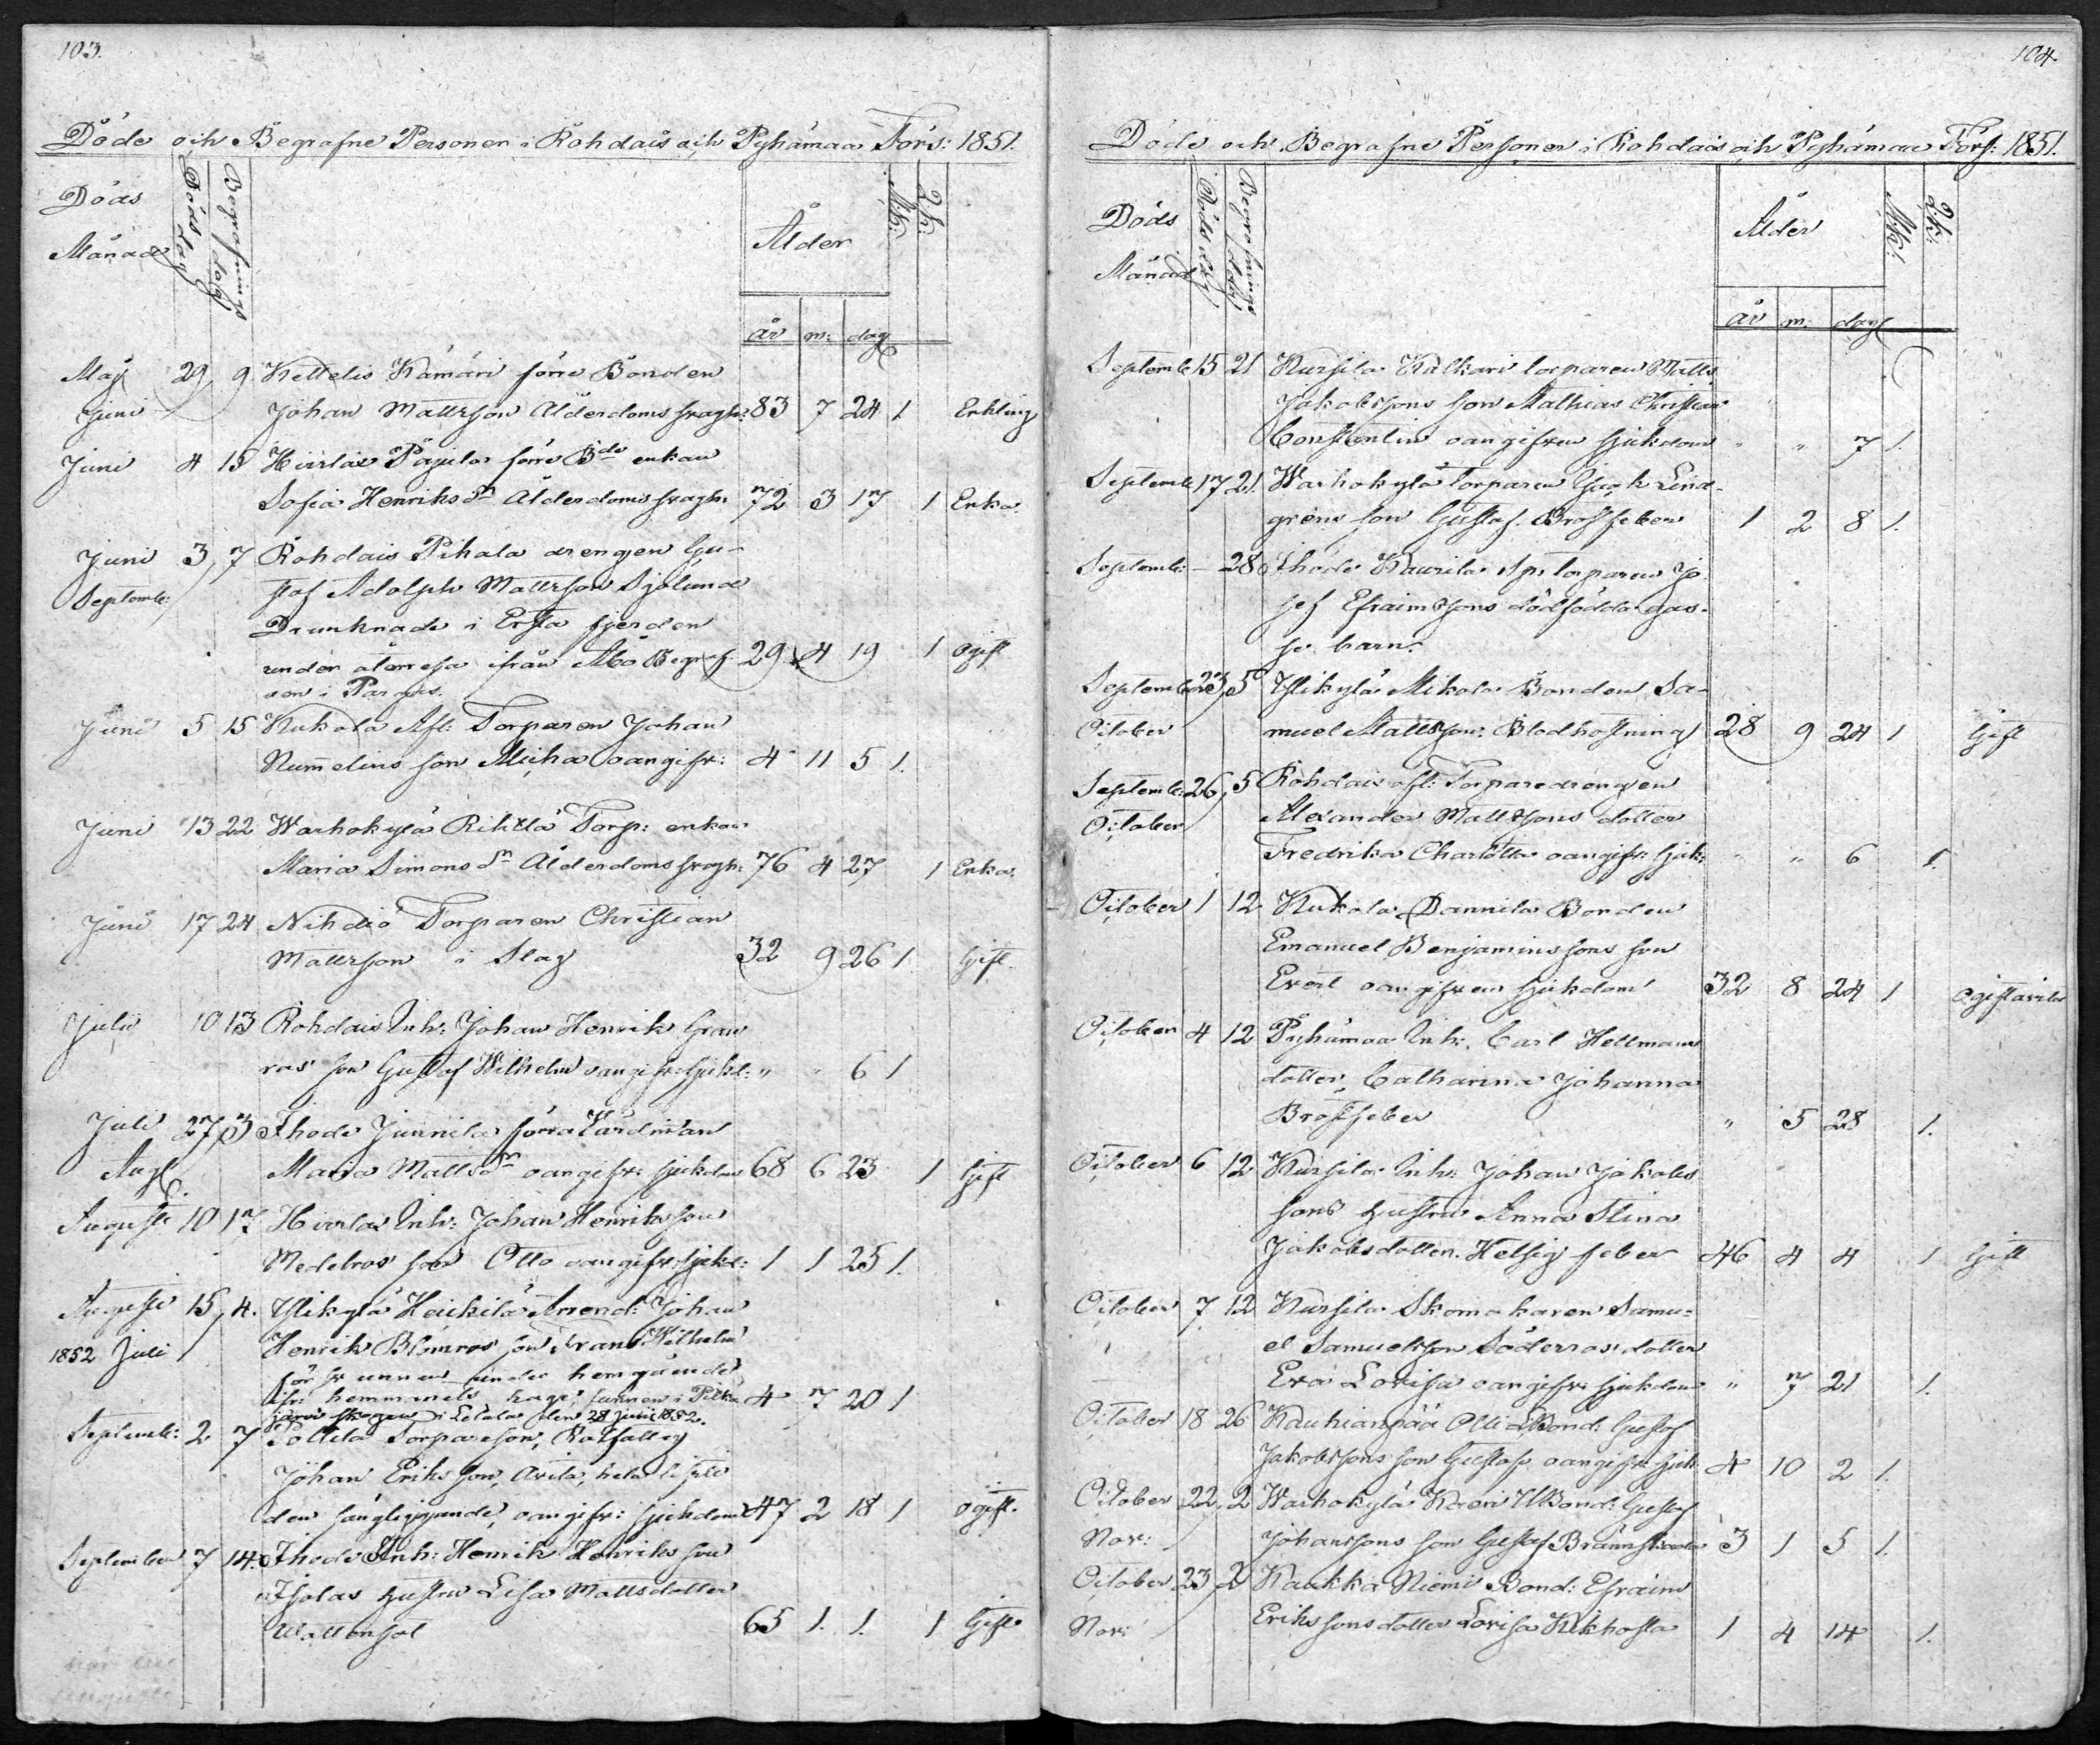 103.
Döde och Begrafne Personer i Rohdais och Pyhämaa Förs: 1851.
Döds
Månad
Döds dag
Begrafnings dag
Ålder
M.k:
Q.k:
år m: dag
Maj 29, 9 Kettelis Kämäri förre Bonden
Juni Johan Mattsson Ålderdoms svagh: 83 7 24 1 Enkling
Juni 4 15 Hirslax Pajula förre Bde enkan
Sofia Henriks dr Ålderdoms svagh: 72 3 17 1 Enka.
Juni 3, 7 Rohdais Pihala drengen Gu-
Septemb: staf Adolph Mattsson Sjölund
Drunknade i Ersta fjerden
under återresa ifrån Åbo Begraf- 29. 4 19 1 Ogift
ven i Pargas.
Juni 5 15 Kukola Afl: Torparen Johan
Nummelins son Micha oangifv: 4 11 5 1.
Juni 13 22 Warhokylä Rihtlä Torp: enkan
Maria Simons dr Ålderdoms svagh: 76 4 27 1 Enka.
Juni 17 24 Nihdiö Torparen Christian
Mattsson i Slag 32 9 26 1 Gift.
Julii 10 13 Rohdais Inh: Johan Henrik Gran
ros son Gustaf Wilhelm oangifv: sjukd: " " 6 1
Juli 27, 3 Ihode Junnila förra Värdinnan
Aug. Maria Matts dr oangifv: sjukdom 68 6 23 1 Gift
Augusti 10 17 Hirslax Inh: Johan Henriksson
Medelros son Otto oangifv: sjukd: 1 1 25 1.
Augusti 15, 4. Ylikylä Heickilä Arrend: Johan
1852 Juli Henrik Blomros son Frans Wilhelm
försvunnen under hemgående
ifr: hemmanets hage, funnen i Pitkä 4 7 20 1
järvi skogen i Letala den 28 Junii 1852.
Septemb: 2 7 Pollila Torpareson, Rotfattig
Johan Eriksson, Avita, hela lifsti
den sängliggande, oangifv: sjukdom 47 2 18 1 ogift.
September 7 14 Ihode Inh: Henrik Henriksson
Isolas hustru Lisa Mattsdotter
Wattensot 65 1. 1. 1 Gift
104
Döde och Begrafne Personer i Rohdais och Pyhämaa Förs: 1851.
Döds
Månad
Döds dag
Begrafnings dag
Ålder
M.k:
Q.k:
år m. dag
Septemb 15 21 Kursila Kalkari torparen Matts
Jakobssons son Mathias Christian
Constantin oangifven sjukdom " " 7 1.
Septemb 17 21. Warhokylä Torparen Isack Lind-
grens son Gustaf. Bröstfeber 1 2 8 1.
Septemb: — 28 Ihode Kaurila Sp: torparen Jo
sef Efraimssons dödfödda gos-
se barn.
September 23, 5 Ylikylä Mikola Bonden Sa-
October muel Mattsson: Blodhostning 28 9 24 1 Gift
Septemb: 26, 5 Rohdais afl: Torparedrengen
October Alexander Mattssons dotter
Fredrika Charlotta oangifv: sjuk: " " 6 1.
October 1 12 Kukola Dannila Bonden
Emanuel Benjaminssons son
Evert oangifven sjukdom 32 8 24 1 Ogift
October 4 12 Pyhämaa Inh: Carl Hellmans
dotter, Catharina Johanna
Bröstfeber " 5 28 1.
October 6 12 Kursila Inh: Johan Jakobs
sons hustru Anna Stina
Jakobsdotter. Hetsig feber 46 4 4 1 Gift
October 7 12 Kursila Skomakaren Samu-
el Samuelsson Söderros: dotter
Eva Lovisa oangifv: sjukdom " 7 21 1.
October 18 26 Kauhianpää Olli Bond: Gustaf
Jakobssons son Gustaf oangifv: sjuk 4 10 2 1.
October 22, 2 Warhokylä Bond: Gustaf
Nov: Johanssons son Gustaf Brännskada 3 1 5 1.
October 23, 2 Kaukka Niemi Bond: Efraim
Nov: Erikssons dotter Lovisa Kikhosta 1 4 14 1.